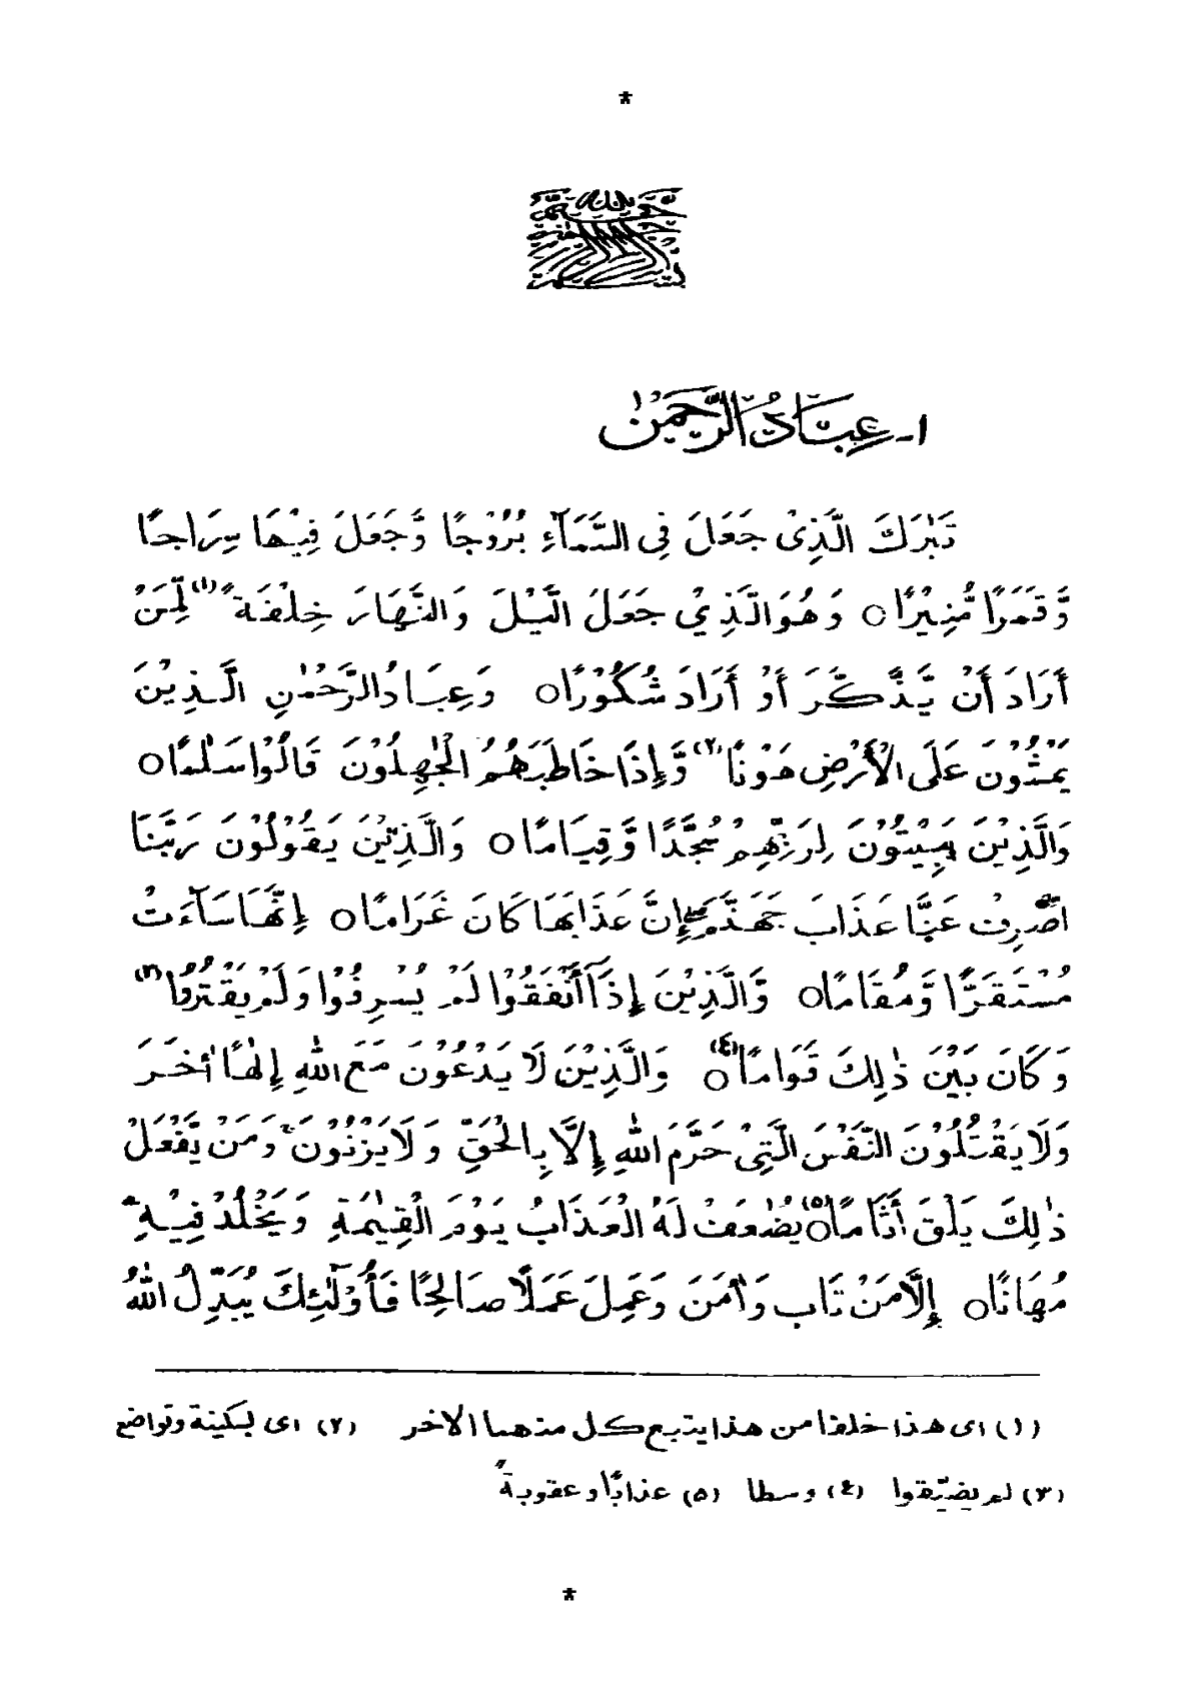 *
بسم الله الرحمن الرحيم
١- عِبَادُ الرَّحْمٰنِ
تَبٰرَكَ الَّذِیْ جَعَلَ فِی السَّمَآءِ بُرُوْجًا وَّجَعَلَ فِیْهَا سِرَاجًا
وَّقَمَرًا مُّنِیْرًا○ وَهُوَ الَّذِيْ جَعَلَ الَّیْلَ وَالنَّهَارَ خِلْفَةً (١) لِّمَنْ
أَرَادَ أَنْ یَّذَّكَّرَ أَوْ أَرَادَ شُكُوْرًا○ وَعِبَادُ الرَّحْمٰنِ الَّذِیْنَ
یَمْشُوْنَ عَلَی الْأَرْضِ هَوْنًا (٢) وَّإِذَا خَاطَبَهُمُ الْجٰهِلُوْنَ قَالُوْا سَلٰمًا○
وَالَّذِیْنَ یَبِیْتُوْنَ لِرَبِّهِمْ سُجَّدًا وَّقِیَامًا○ وَالَّذِیْنَ یَقُوْلُوْنَ رَبَّنَا
اصْرِفْ عَنَّا عَذَابَ جَهَنَّمَ إِنَّ عَذَابَهَا كَانَ غَرَامًا○ إِنَّهَا سَآءَتْ
مُسْتَقَرًّا وَّمُقَامًا○ وَالَّذِیْنَ إِذَآ أَنْفَقُوْا لَمْ یُسْرِفُوْا وَلَمْ یَقْتُرُوْا (٣)
وَكَانَ بَیْنَ ذٰلِكَ قَوَامًا (٤)○ وَالَّذِیْنَ لَا یَدْعُوْنَ مَعَ اللّٰهِ إِلٰهًا أٰخَرَ
وَلَا یَقْتُلُوْنَ النَّفْسَ الَّتِیْ حَرَّمَ اللّٰهُ إِلَّا بِالْحَقِّ وَلَا یَزْنُوْنَ ۚ وَمَنْ یَّفْعَلْ
ذٰلِكَ یَلْقَ أَثَامًا (٥)○ یُضٰعَفْ لَهُ الْعَذَابُ یَوْمَ الْقِیٰمَةِ وَیَخْلُدْ فِیْهٖ
مُهَانًا○ إِلَّا مَنْ تَابَ وَاٰمَنَ وَعَمِلَ عَمَلًا صَالِحًا فَأُوْلٰٓئِكَ یُبَدِّلُ اللّٰهُ
(١) ای هذا خلفا من هذا یتبع كل منهما الاخر (٢) ای بسكینة وتواضع
(٣) لم یضیّقوا (٤) وسطا (٥) عذابًا وعقوبةً
*